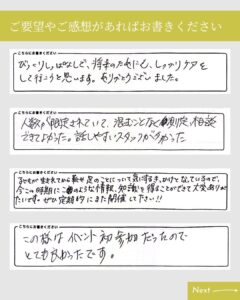 ご要望やご感想があればお書きください
こちらにお書きください
びっくりしっぱなしで、将来のためにも、しっかりケアを
して行こうと思います。ありがとうございました。
こちらにお書きください
人数が限定されていて、混むことなく測定、相談
できてよかった。話しやすいスタッフがよかった
こちらにお書きください
子どもが生まれてから歯や足のことについて気に
今この時期にこのような情報、知識を得ることができて大変ありが
たいです。ぜひ定期的にまた開催して下さい!!
こちらにお書きください
この様なイベント初参加だったので
とても良かったです。
Next